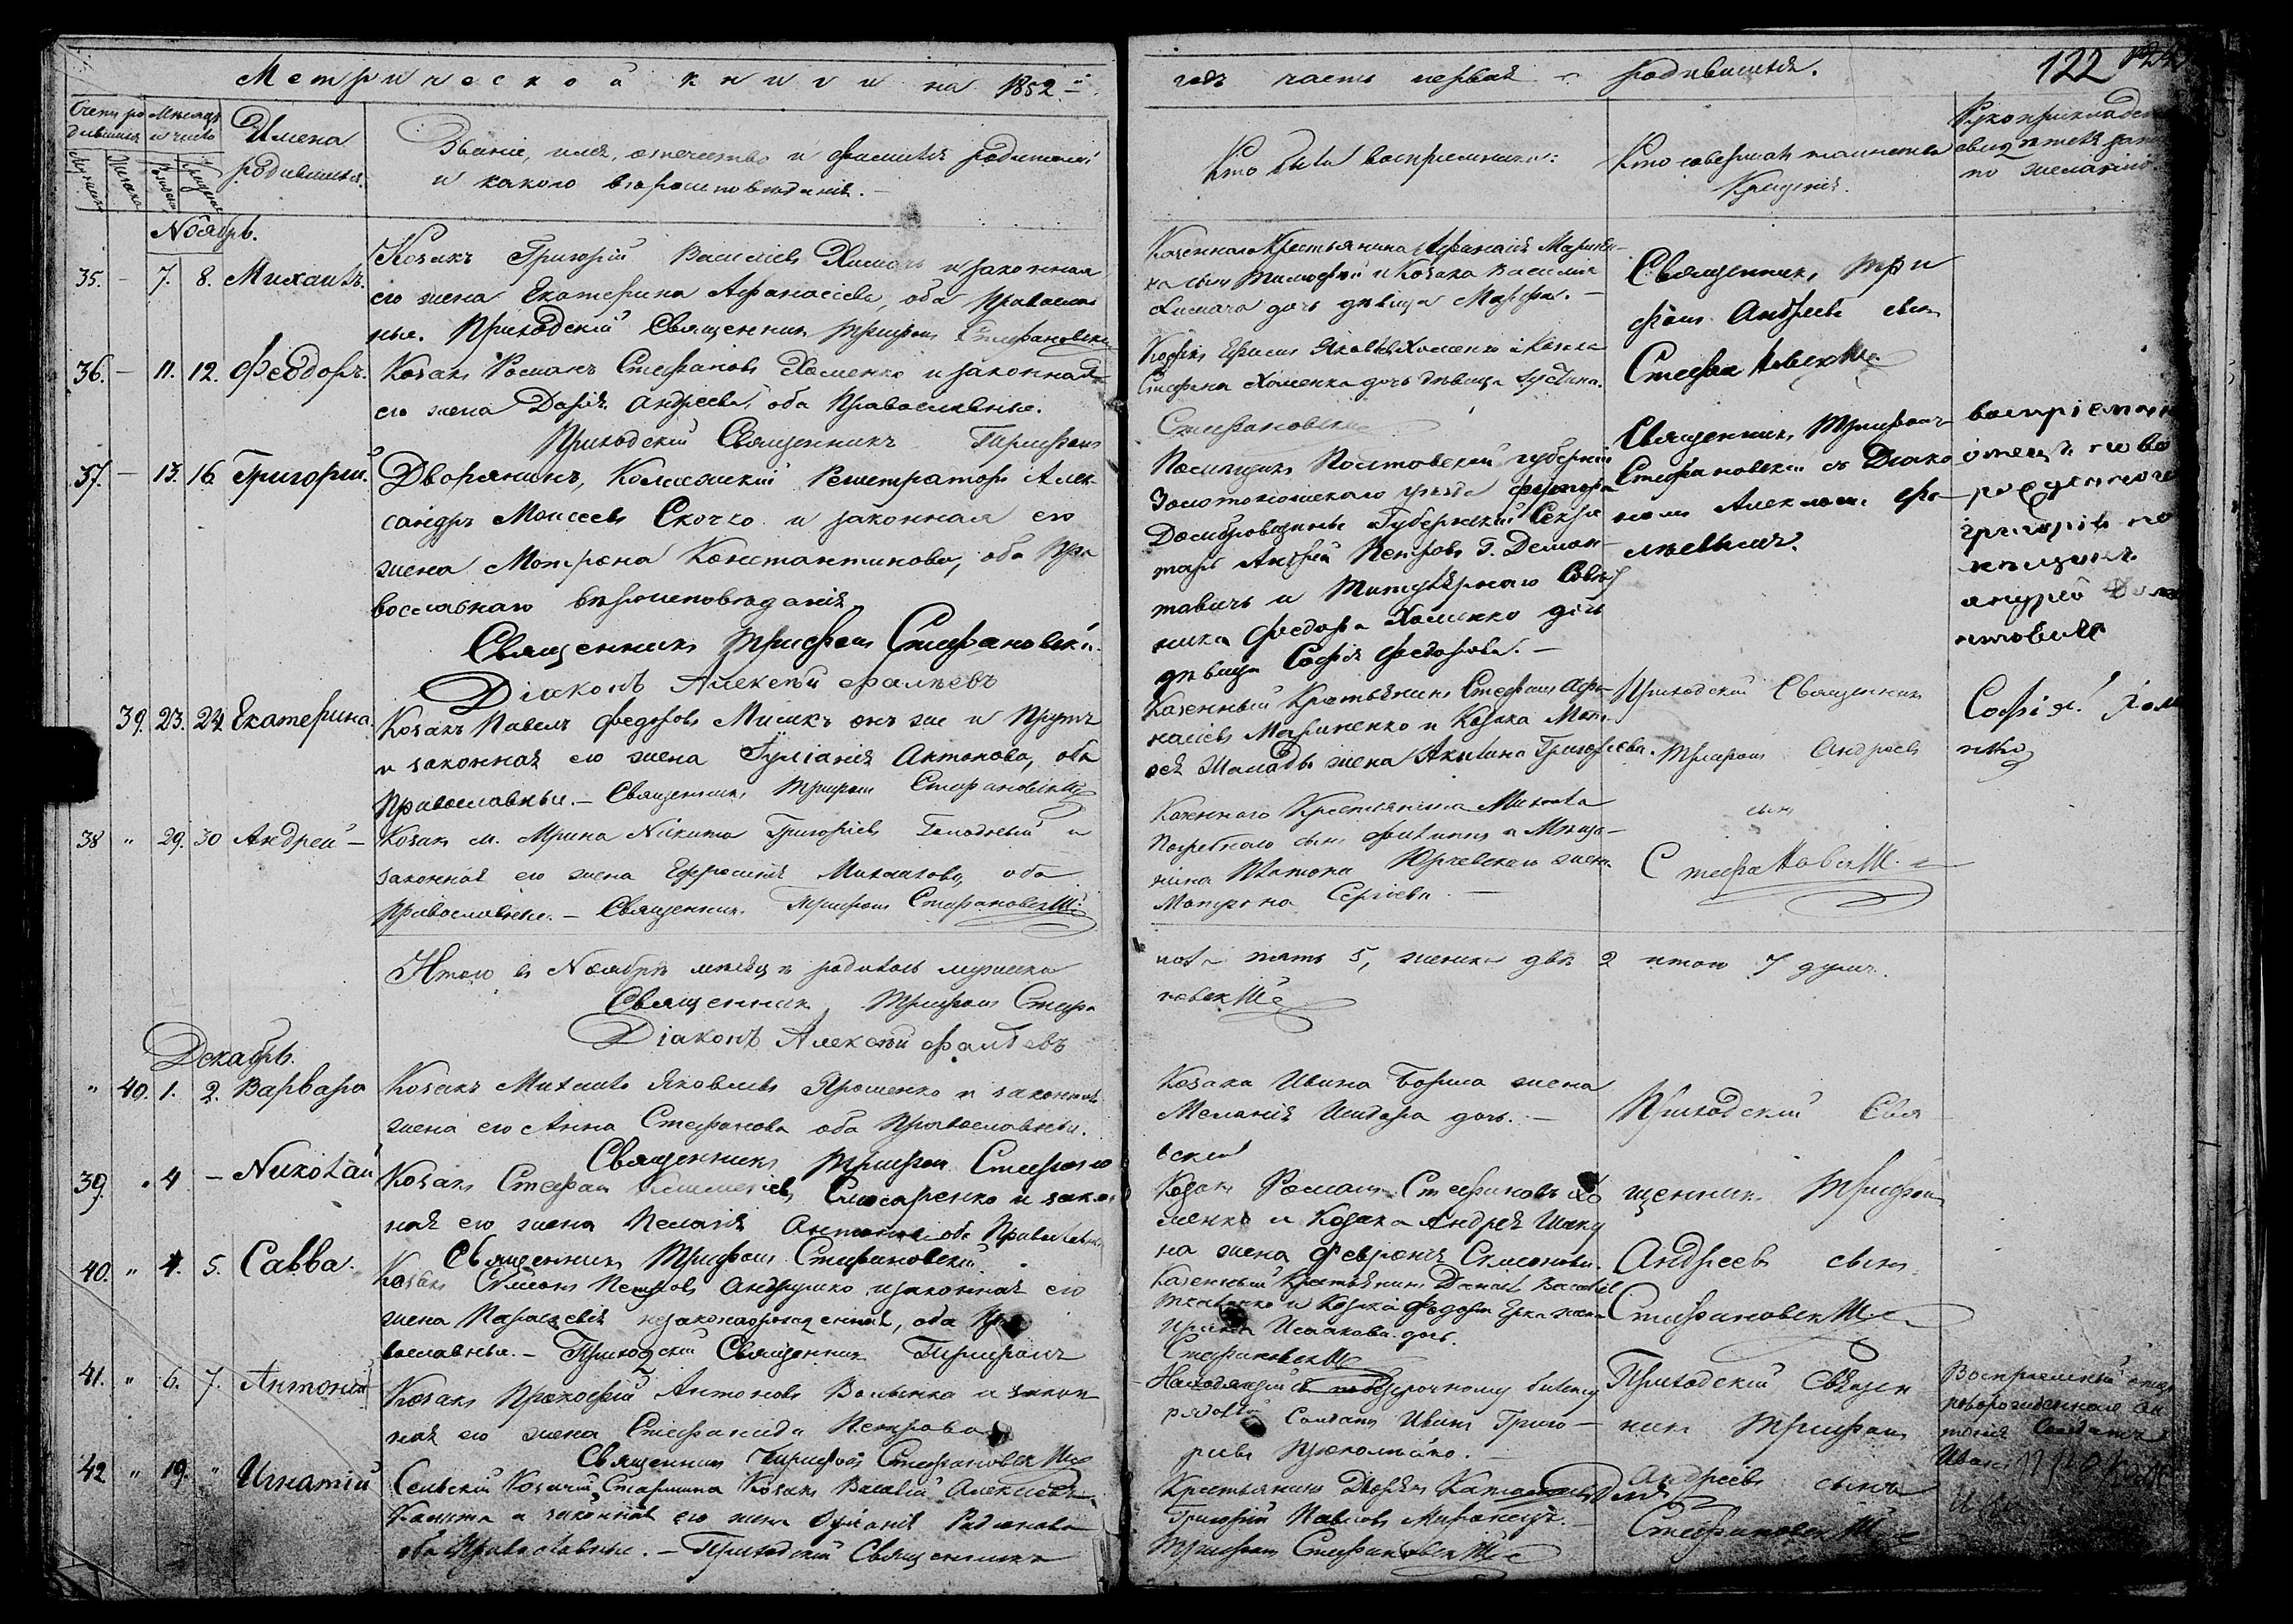 Метрической книги на 1852-й
годъ часть первая о родившихся.
122
Счетъ родившихся
Мѣсяцъ и число
Имена родившихся.
Званіе, имя, отечество и фамилія родителей
и какого вѣроисповѣданія.
Кто былъ воспріемники:
Кто совершалъ таинство
Крещенія.
Рукоприкладство
свидѣтелей
по желанію.
Ноябрь.
35. – 7. 8. Михаилъ.
Козакъ Григорій Василіевъ и законная
его жена Екатерина Афанасіева, оба Православ
ные. Приходскій Священникъ Трифонъ Стефановскій
Казеннаго Крестьянина Афанасія Маринен-
ка сынъ Тимофей и Козака Василія
дочь дѣвица Марфа.
Священникъ Три
фонъ Андреевъ сынъ
Стефановскій
36. – 11. 12. Феодоръ.
Козакъ Романъ Стефановъ Хоменко и законная
его жена Дарія Андреева, оба Православные.
Приходскій Священникъ Трифонъ
Яковлевъ Хоменко и Козака
Стефана Хоменка дочь дѣвица Іустина.
Стефановскій
37. – 13. 16. Григорій.
Дворянинъ, Коллежскій Регистраторъ Алек
сандръ Моисеевъ Скочко и законная его
жена Мотрона Константинова, оба Пра
вославнаго вѣроисповѣданія
Священникъ Трифонъ Стефановскій.
Діаконъ Алексѣй Фалѣевъ
Помѣщикъ Полтавской губерніи
Золотоношскаго уѣзда хутора
Домбровщины Губернскій Секре
тарь Андрей Петровъ Г. Деман-
товичъ и Титулярнаго Совѣт
ника Федора Хоменко дочь
дѣвица Софія Федорова.
Священникъ Трифонъ
Стефановскій съ Діако
номъ Алексѣемъ Фа-
лѣевымъ.
воспріемникъ
новорожденнаго
Григорія
помѣщикъ
Андрей Дема
нтовичъ
39. 23. 24. Екатерина.
Козакъ Павелъ Федоровъ Мисикъ онъ же и Прутъ
и законная его жена Іуліанія Антонова, оба
Православные. – Священникъ Трифонъ Стефановскій
Казенный Крестьянинъ Стефанъ Афа-
насіевъ Мариненко и Козака
жена Акилина Григорьева.
Приходскій Священникъ
Трифонъ Андреевъ
сынъ
Стефановскій
Софія Хоме
нко
38 " 29. 30 Андрей –
Козакъ м. Мрина Никита Григоріевъ Голодный и
законная его жена Ефросинія Михаилова, оба
Православные. – Священникъ Трифонъ Стефановскій
Казеннаго Крестьянина Михаила
Погребнаго сынъ Филиппъ и Мѣща-
нина Платона Юрчевскаго жена
Мотрона Сергіева.
Итого въ Ноябрѣ мѣсяцѣ родилось мужеска
пола пять 5, женска двѣ 2 итого 7 душъ.
Священникъ Трифонъ Стефа
новскій
Діаконъ Алексѣй Фалѣевъ
Декабрь.
" 40. 1. 2. Варвара
Козакъ Михаилъ Яковлевъ Ярошенко и законная
жена его Анна Стефанова оба Православные.
Священникъ Трифонъ Стефано
вскій
Козака Ивана Бориса жена
Меланія Исидора дочь.
Приходскій Свя
39. " 4 – Николай
Козакъ Стефанъ Климентіевъ Слюсаренко и закон
ная его жена Пелагія Антонова оба Православные
Священникъ Трифонъ Стефановскій.
Козакъ Романъ Стефановъ Хо
менко и Козака Андрея
жена Февронія Симонова.
щенникъ Трифонъ
40. " 4. 5. Савва.
Козакъ Симонъ Петровъ Андрушко и законная его
жена Параскевія незаконорожденная, оба Пра
вославные. – Приходскій Священникъ Трифонъ
Стефановскій
Казенный Крестьянинъ
Ткаченко и Козака Федора жена
Исаакова дочь.
Андреевъ сынъ
Стефановскій
41. " 6. 7. Антоній
Козакъ Прокофій Антоновъ Волынка и закон
ная его жена Стефанида Петрова
Священникъ Трифонъ Стефановскій
Находящійся по безсрочному билету
рядовой Солдатъ Иванъ Григо-
ріевъ
Приходскій Священ
никъ Трифонъ
Андреевъ сынъ
Стефановскій
Воспріемный отецъ
новорожденнаго Ан
тонія Солдатъ
Иванъ
42 " 19. " Игнатій
Сельскій Козачій Старшина Козакъ Василій Алексіевъ
Калита и законная его жена Іуліанія Родіонова
оба Православные. – Приходскій Священникъ
Григорій Павловъ
Трифонъ Стефановскій